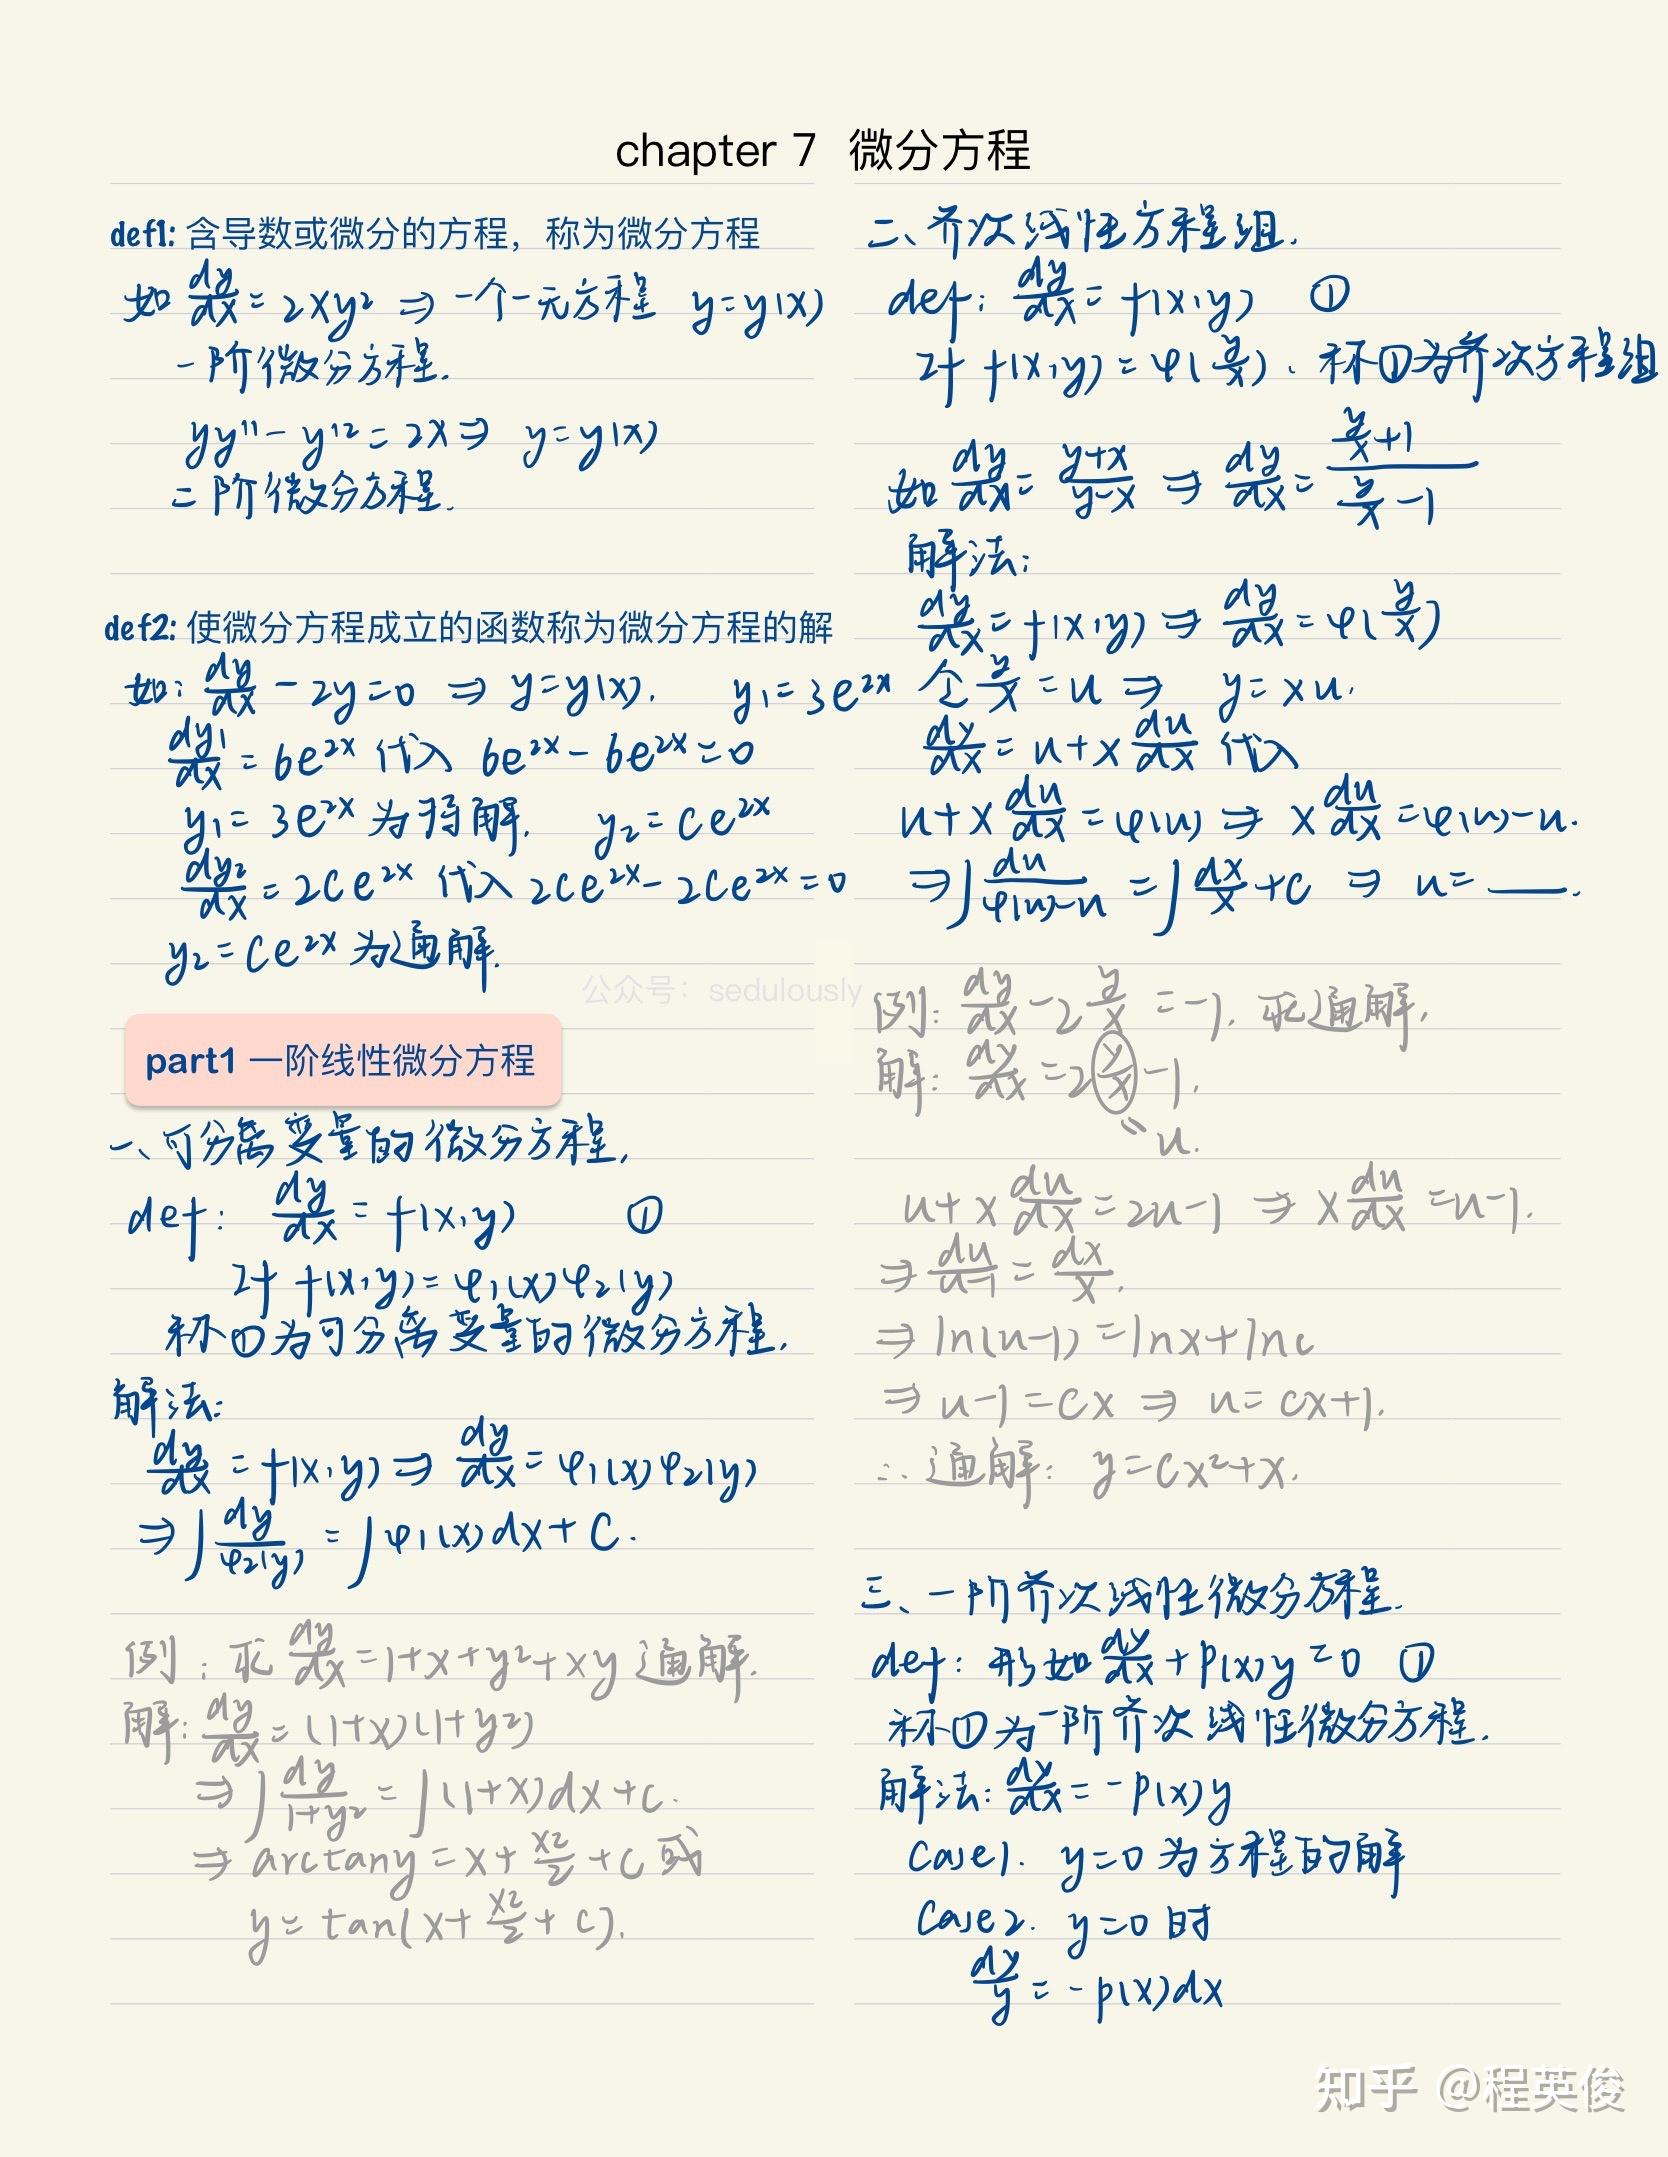 chapter 7 微分方程
def1: 含导数或微分的方程，称为微分方程
如 dy/dx = 2xy² ⇒ 一个一元方程 y=y(x)
一阶微分方程.
yy''-y'²=2x ⇒ y=y(x)
二阶微分方程.
def2: 使微分方程成立的函数称为微分方程的解
如: dy/dx - 2y=0 ⇒ y=y(x). y₁=3e^2x
dy₁/dx = 6e^2x 代入 6e^2x - 6e^2x=0
y₁= 3e^2x 为特解. y₂=Ce^2x
dy₂/dx = 2Ce^2x 代入 2Ce^2x - 2Ce^2x=0
y₂=Ce^2x 为通解.
公众号: sedulously
part1 一阶线性微分方程
一、可分离变量的微分方程.
def: dy/dx = f(x,y) ①
if f(x,y)=φ₁(x)φ₂(y)
称①为可分离变量的微分方程.
解法:
dy/dx = f(x,y) ⇒ dy/dx = φ₁(x)φ₂(y)
⇒ ∫ dy/φ₂(y) = ∫ φ₁(x)dx + C.
例: 求 dy/dx = 1+x+y²+xy 通解.
解: dy/dx = (1+x)(1+y²)
⇒ ∫ dy/1+y² = ∫ (1+x)dx + C.
⇒ arctany = x + x²/2 + C 或
y = tan(x + x²/2 + C).
二、齐次线性方程组.
def: dy/dx = f(x,y) ①
if f(x,y)=φ(y/x). 称①为齐次方程组
如 dy/dx = y+x/y-x ⇒ dy/dx = y/x+1 / y/x-1
解法:
dy/dx = f(x,y) ⇒ dy/dx = φ(y/x)
令 y/x = u ⇒ y = xu.
dy/dx = u + x du/dx 代入
u + x du/dx = φ(u) ⇒ x du/dx = φ(u)-u.
⇒ ∫ du/φ(u)-u = ∫ dx/x + C ⇒ u = ____.
例: dy/dx - 2 y/x = -1. 求通解.
解: dy/dx = 2 y/x - 1.
= u.
u + x du/dx = 2u-1 ⇒ x du/dx = u-1.
⇒ du/u-1 = dx/x.
⇒ ln(u-1) = lnx + lnc
⇒ u-1 = cx ⇒ u = cx+1.
∴ 通解: y = cx²+x.
三、一阶齐次线性微分方程.
def: 形如 dy/dx + P(x)y = 0 ①
称①为一阶齐次线性微分方程.
解法: dy/dx = -P(x)y
Case1. y=0 为方程的解
Case2. y=0 时
dy/y = -p(x)dx
知乎 @程英俊